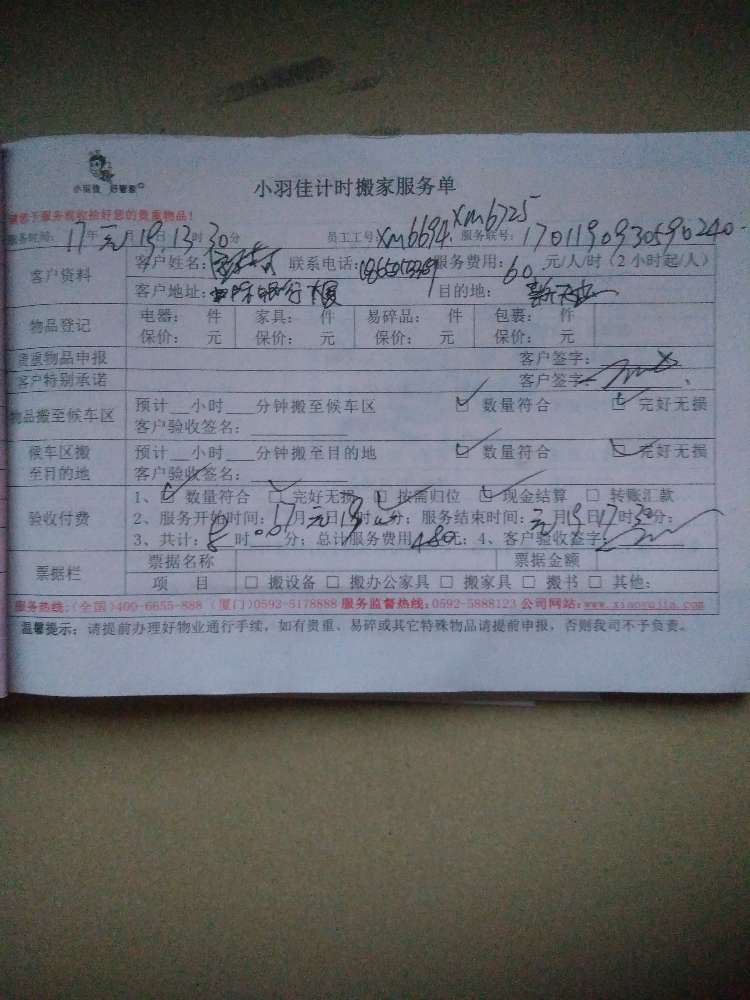 小羽佳 好管家
小羽佳计时搬家服务单
请您于服务前收拾好您的贵重物品！
服务时间：17年元月19日13时30分 员工工号：xm6694 xm6725 服务联号：1701190930590240
客户资料 客户姓名： 联系电话： 服务费用：60元/人/时（2小时起/人）
客户地址：国际银行大厦 目的地：
物品登记 电器： 件 家具： 件 易碎品： 件 包裹： 件
保价： 元 保价： 元 保价： 元 保价： 元
贵重物品申报 客户签字：
客户特别承诺 客户签字：
物品搬至候车区 预计__小时___分钟搬至候车区 ☑ 数量符合 ☑ 完好无损
客户验收签名：
候车区搬至目的地 预计__小时___分钟搬至目的地 ☑ 数量符合 ☑ 完好无损
客户验收签名：
验收付费 1、☑ 数量符合 ☑ 完好无损 □ 按需归位 ☑ 现金结算 □ 转账汇款
2、服务开始时间： 月 日 时 分；服务结束时间：元月19日17时30分；
3、共计：8时 分；总计服务费用480元；4、客户验收签字：
票据栏 票据名称 票据金额
项 目 □ 搬设备 □ 搬办公家具 □ 搬家具 □ 搬书 □ 其他：
服务热线：(全国)400-6655-888 (厦门)0592-5178888 服务监督热线：0592-5888123 公司网站：www.xiaoyujia.com
温馨提示：请提前办理好物业通行手续，如有贵重、易碎或其它特殊物品请提前申报，否则我司不予负责。